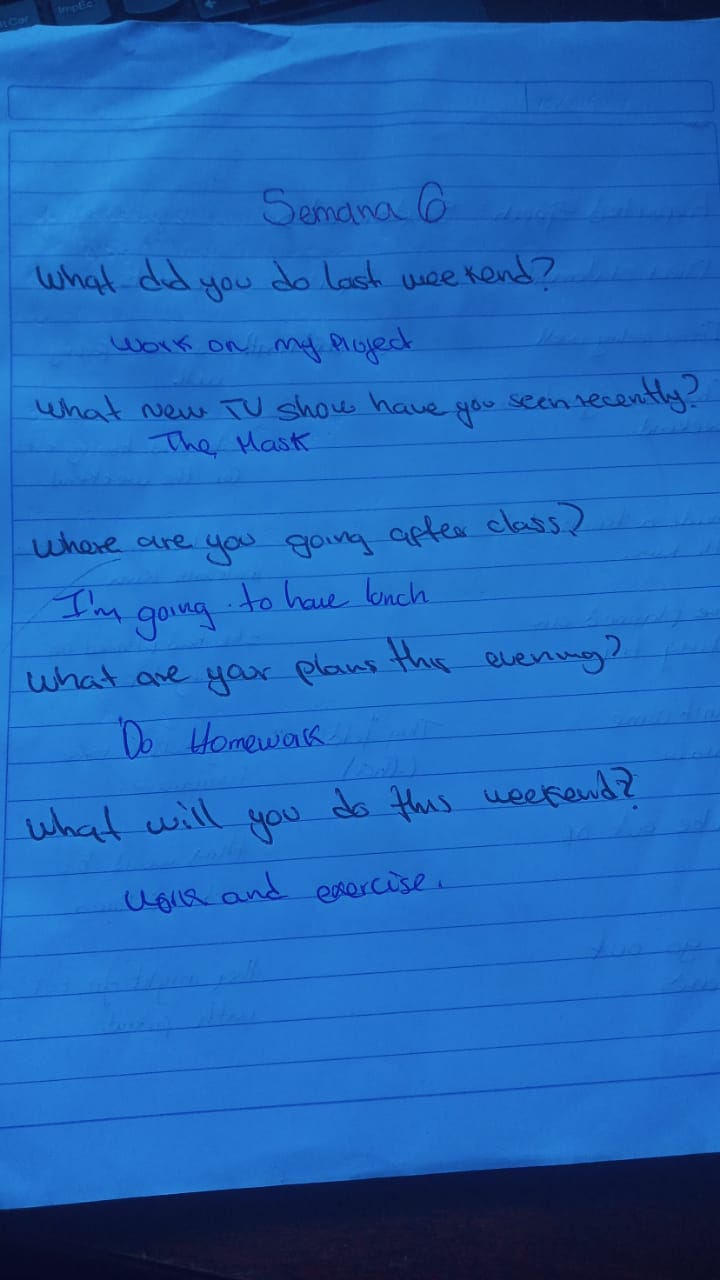 ImpEc
Semana 6
What did you do last weekend?
Work on my Project
What New TV show have you seen recently?
The Mask
Where are you going after class?
I'm going to have lunch
What are your plans this evening?
Do Homework
What will you do this weekend?
Work and exercise.